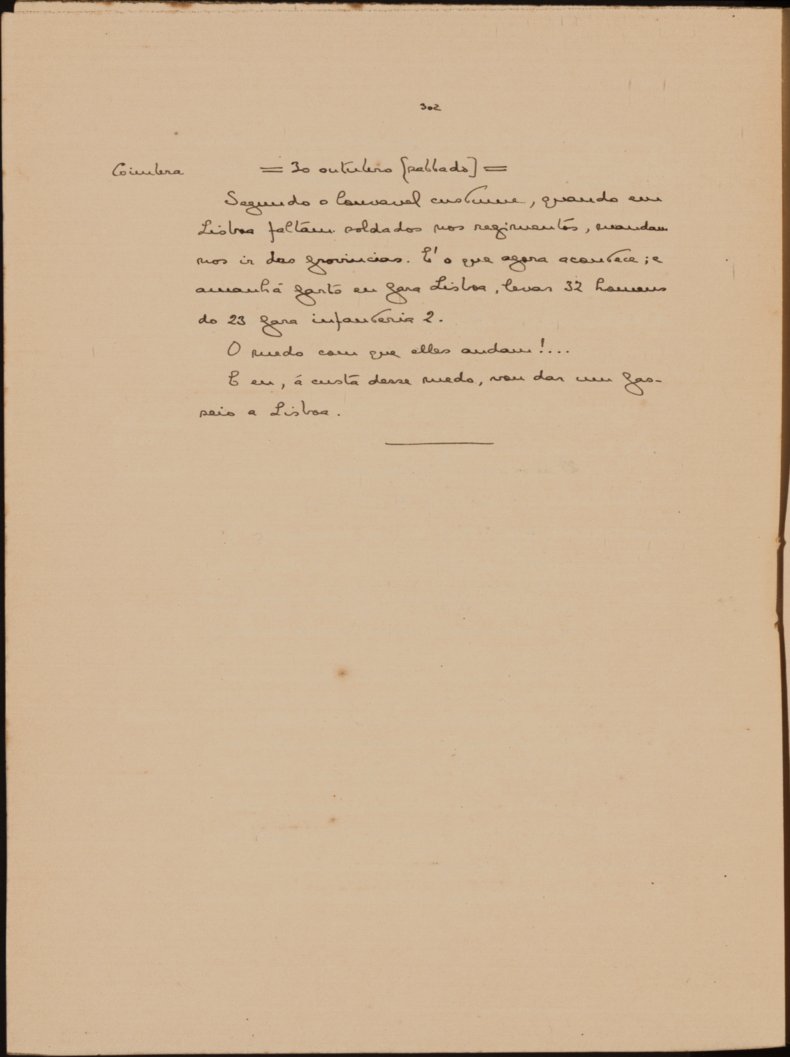 302
Coimbra = 30 outubro [sabbado] =
Segundo o louvavel custume, quando em
Lisboa faltam soldados nos regimentos, mandam
nos ir das provincias. É o que agora acontece; e
amanhã parto eu para Lisboa, levar 32 homens
do 23 para infanteria 2.
O medo com que elles andam!...
E eu, á custa desse medo, vou dar um pas-
seio a Lisboa.